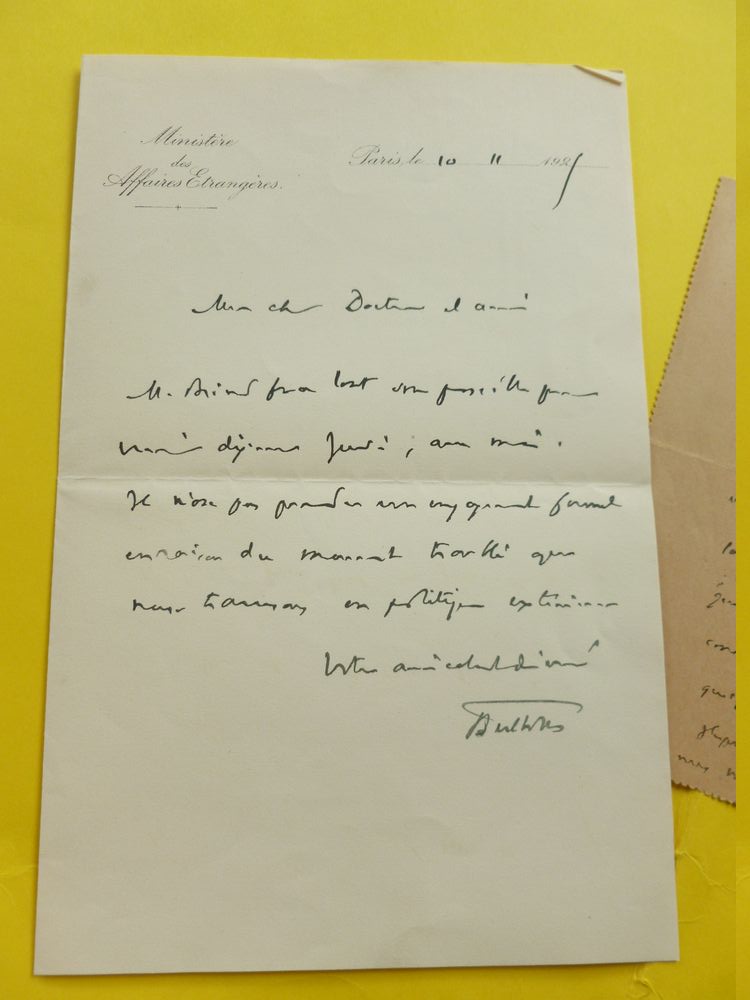 Ministère
des
Affaires Etrangères.
Paris, le 10 11 1925
Mon cher Docteur et ami
M. Briand fera tout son possible pour
venir déjeuner Jeudi ; avec moi.
Je n'ose pas prendre un engagement formel
en raison du moment troublé que
nous traversons en politique extérieure
Votre amicalement dévoué
Berthelot